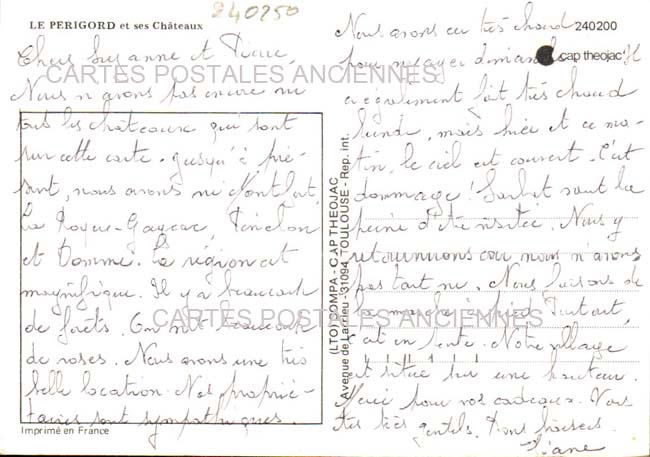 240250
LE PERIGORD et ses Châteaux
Chers Suzanne et Pierre,
Nous n'avons pas encore vu
tous les châteaux qui sont
sur cette carte. Jusqu'à pré-
sent, nous avons vu Montfort,
La Roque-Gageac,
et Domme. La région est
magnifique. Il y a beaucoup
de forêts. On voit beaucoup
de roses. Nous avons une très
belle location. Nos proprié-
taires sont sympathiques.
Imprimé en France
(LTO) POMPA - CAP THEOJAC
Avenue de Larrieu - 31094 TOULOUSE - Rep. int.
240200
cap theojac
Nous avons eu très chaud
pour voyager dimanche. Il
a également fait très chaud
lundi, mais hier et ce ma-
tin, le ciel est couvert. C'est
dommage! Sarlat vaut la
peine d'être visitée. Nous y
retournerons car nous n'avons
pas tout vu. Nous faisons de
la marche à pied. Partout,
c'est en pente. Notre village
est situé sur une hauteur.
Merci pour vos cadeaux. Vous
êtes très gentils. Bons baisers.
Liane
CARTES POSTALES ANCIENNES
CARTES POSTALES ANCIENNES